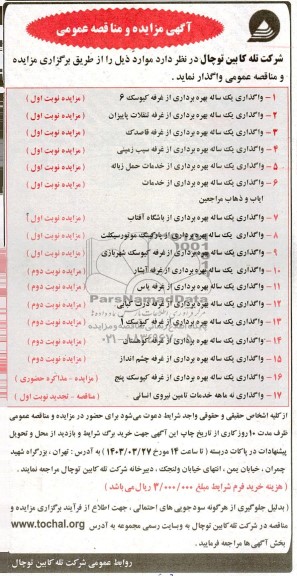 آگهی مزایده و مناقصه عمومی
شرکت تله کابین توچال در نظر دارد موارد ذیل را از طریق برگزاری مزایده
و مناقصه عمومی واگذار نماید .
۱ - واگذاری یک ساله بهره برداری از غرفه کیوسک ۶ ( مزایده نوبت اول )
۲ - واگذاری یک ساله بهره برداری از غرفه تنقلات پاییزان ( مزایده نوبت اول )
۳ - واگذاری یک ساله بهره برداری از غرفه قاصدک ( مزایده نوبت اول )
۴ - واگذاری یک ساله بهره برداری از غرفه سیب زمینی ( مزایده نوبت اول )
۵ - واگذاری یک ساله بهره برداری از خدمات حمل زباله ( مزایده نوبت اول )
۶ - واگذاری یک ساله بهره برداری از خدمات ( مزایده نوبت اول )
ایاب و ذهاب مراجعین
۷ - واگذاری یک ساله بهره برداری از باشگاه آفتاب ( مزایده نوبت اول )
۸ - واگذاری یک ساله بهره برداری از پارکینگ موتورسیکلت ( مزایده نوبت اول )
۹ - واگذاری یک ساله بهره برداری از غرفه کیوسک شهربازی ( مزایده نوبت اول )
۱۰ - واگذاری یک ساله بهره برداری از غرفه آبشار ( مزایده نوبت دوم )
۱۱ - واگذاری یک ساله بهره برداری از غرفه یاس ( مزایده نوبت دوم )
۱۲ - واگذاری یک ساله بهره برداری از غرفه ذرت کبابی ( مزایده نوبت دوم )
۱۳ - واگذاری یک ساله بهره برداری از غرفه کیوسک ۱ ( مزایده نوبت دوم )
۱۴ - واگذاری یک ساله بهره برداری از غرفه کوهستان ( مزایده نوبت دوم )
۱۵ - واگذاری یک ساله بهره برداری از غرفه چشم انداز ( مزایده نوبت دوم )
۱۶ - واگذاری یک ساله بهره برداری از غرفه کیوسک پنج ( مزایده - مذاکره حضوری )
۱۷ - واگذاری نه ماهه خدمات تامین نیروی انسانی ( مناقصه - تجدید نوبت اول )
از کلیه اشخاص حقیقی و حقوقی واجد شرایط دعوت می شود برای حضور در مزایده و مناقصه عمومی
ظرف مدت ۱۰ روز کاری از تاریخ چاپ این آگهی جهت خرید برگ شرایط و بازدید از محل و تحویل
پیشنهادات در پاکات دربسته ( تا ساعت ۱۴ مورخ ۱۴۰۳/۰۳/۲۷ ) به آدرس : تهران ، بزرگراه شهید
چمران ، خیابان یمن ، انتهای خیابان ولنجک ، دبیرخانه شرکت تله کابین توچال مراجعه نمایند .
( هزینه خرید فرم شرایط مبلغ ۳/۰۰۰/۰۰۰ ریال می باشد )
( بدلیل جلوگیری از هرگونه سودجویی های احتمالی ، جهت اطلاع از فرآیند برگزاری مزایده و
مناقصه در شرکت تله کابین توچال به وبسایت رسمی مجموعه به آدرس www.tochal.org
بخش آگهی ها مراجعه فرمایید .
روابط عمومی شرکت تله کابین توچال